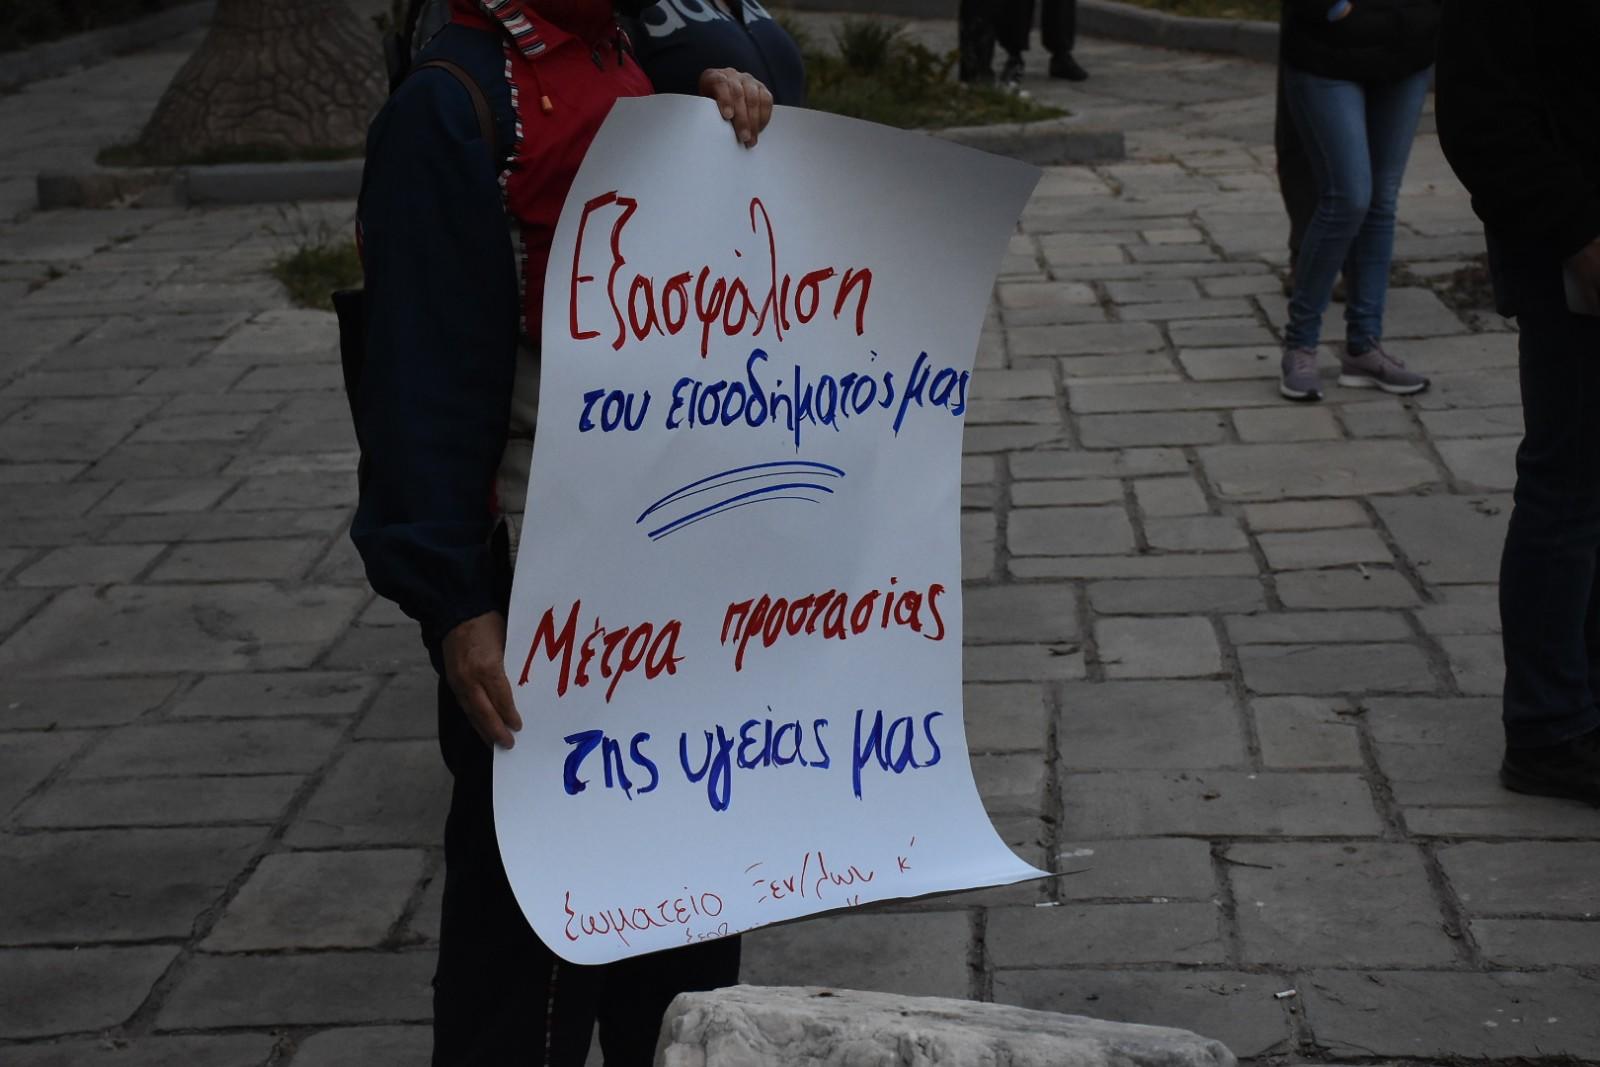 adidas
Εξασφάλιση
του εισοδήματός μας
Μέτρα προστασίας
της υγείας μας
Σωματείο Ξεν/λων κ'